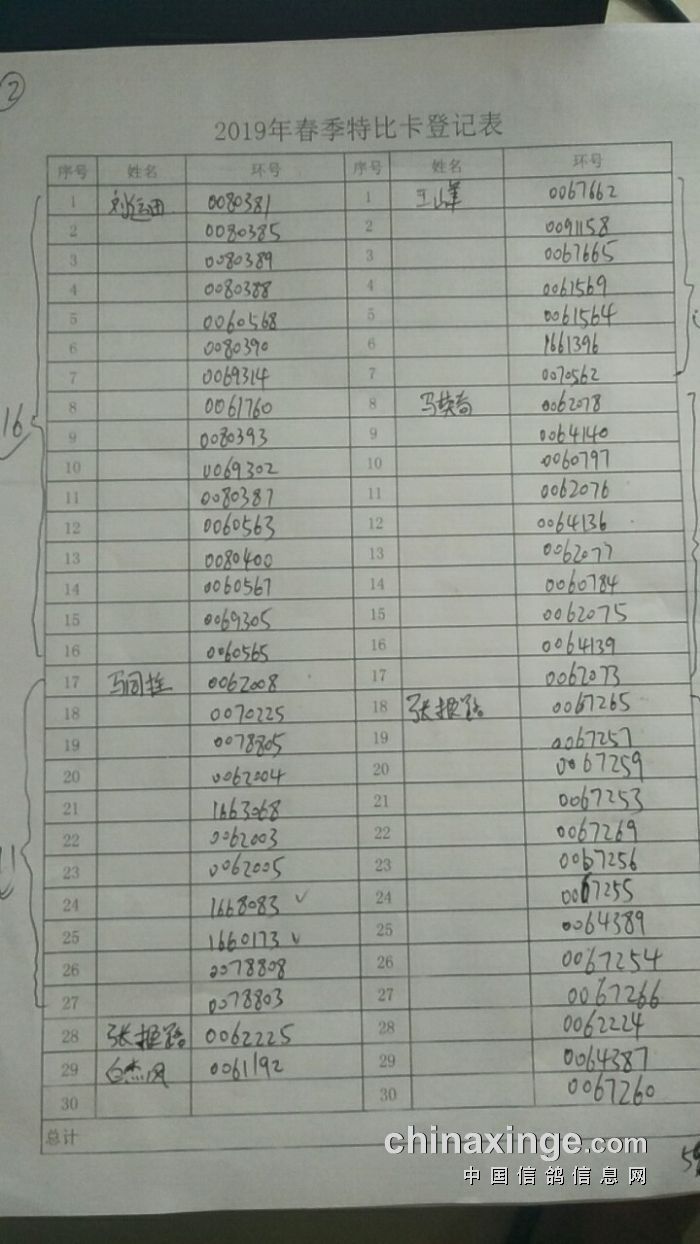 2
2019年春季特比卡登记表
序号 姓名 环号 序号 姓名 环号
1 刘运田 0080381 1 王峰 0067662
2 0080385 2 0091158
3 0080389 3 0067665
4 0080388 4 0061569
5 0060568 5 0061564
6 0080390 6 1661396
7 0069314 7 0070562
8 0061760 8 0062078
9 0080393 9 0064140
10 0069302 10 0060797
11 0080387 11 0062076
12 0060563 12 0064136
13 0080400 13 0062077
14 0060567 14 0060784
15 0069305 15 0062075
16 0060565 16 0064139
17 0062008 17 0062073
18 0070225 18 0067265
19 0078805 19 0067257
20 0062004 20 0067259
21 1663068 21 0067253
22 0062003 22 0067269
23 0062005 23 0067256
24 1668083 ✓ 24 0067255
25 1660173 ✓ 25 0064389
26 0078808 26 0067254
27 0078803 27 0067266
28 0062225 28 0062224
29 0061192 29 0064387
30 30 0067260
总计
16
11
chinaxinge.com
中国信鸽信息网